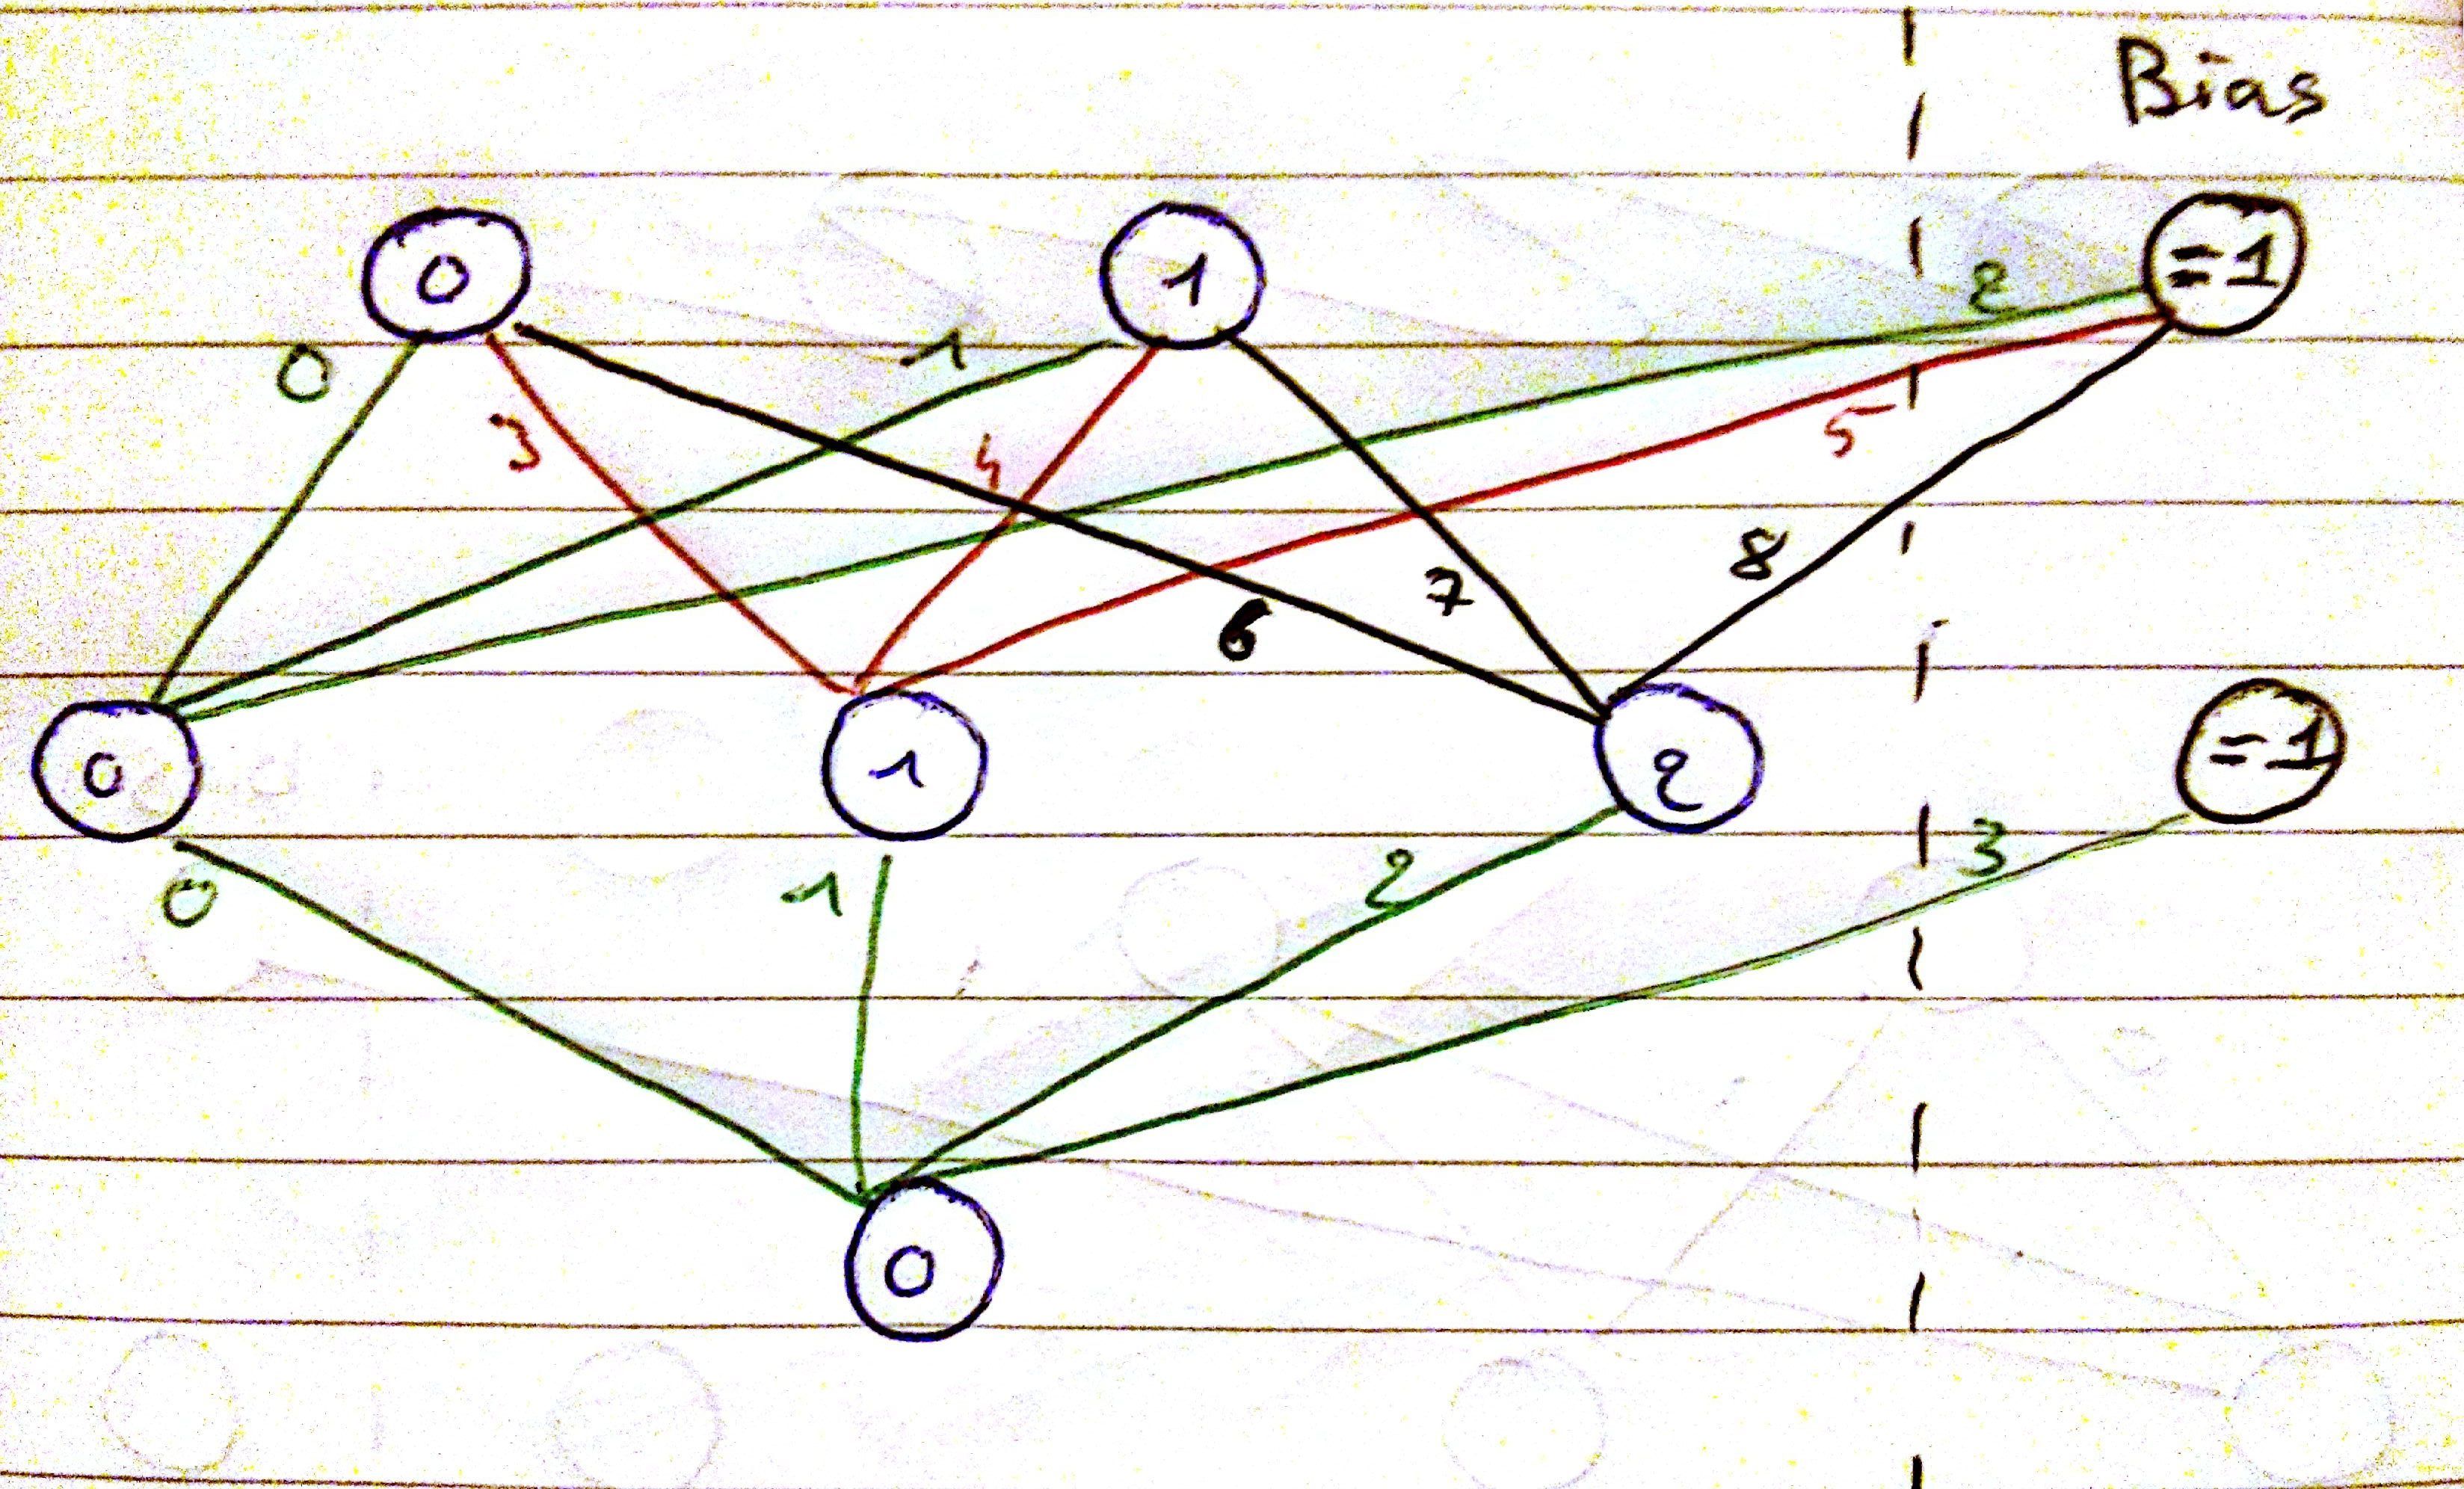 Bias
0 1 =1
0 1 2
3 4 5
6 7 8
0 1 2 =1
0 1 2 3
0